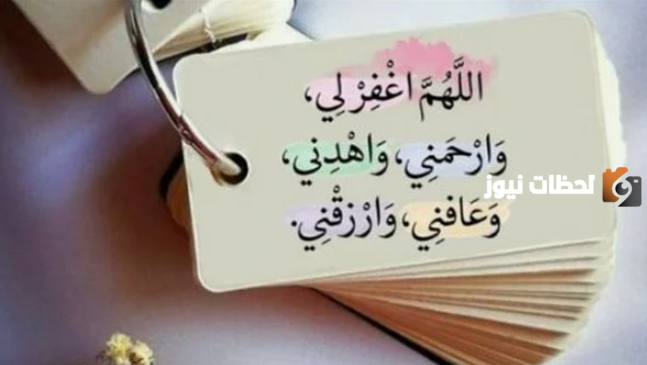 اللَّهُمَّ اغْفِرْ لِي،
وَارْحَمْنِي، وَاهْدِنِي،
وَعَافِنِي، وَارْزُقْنِي.
لحظات نيوز